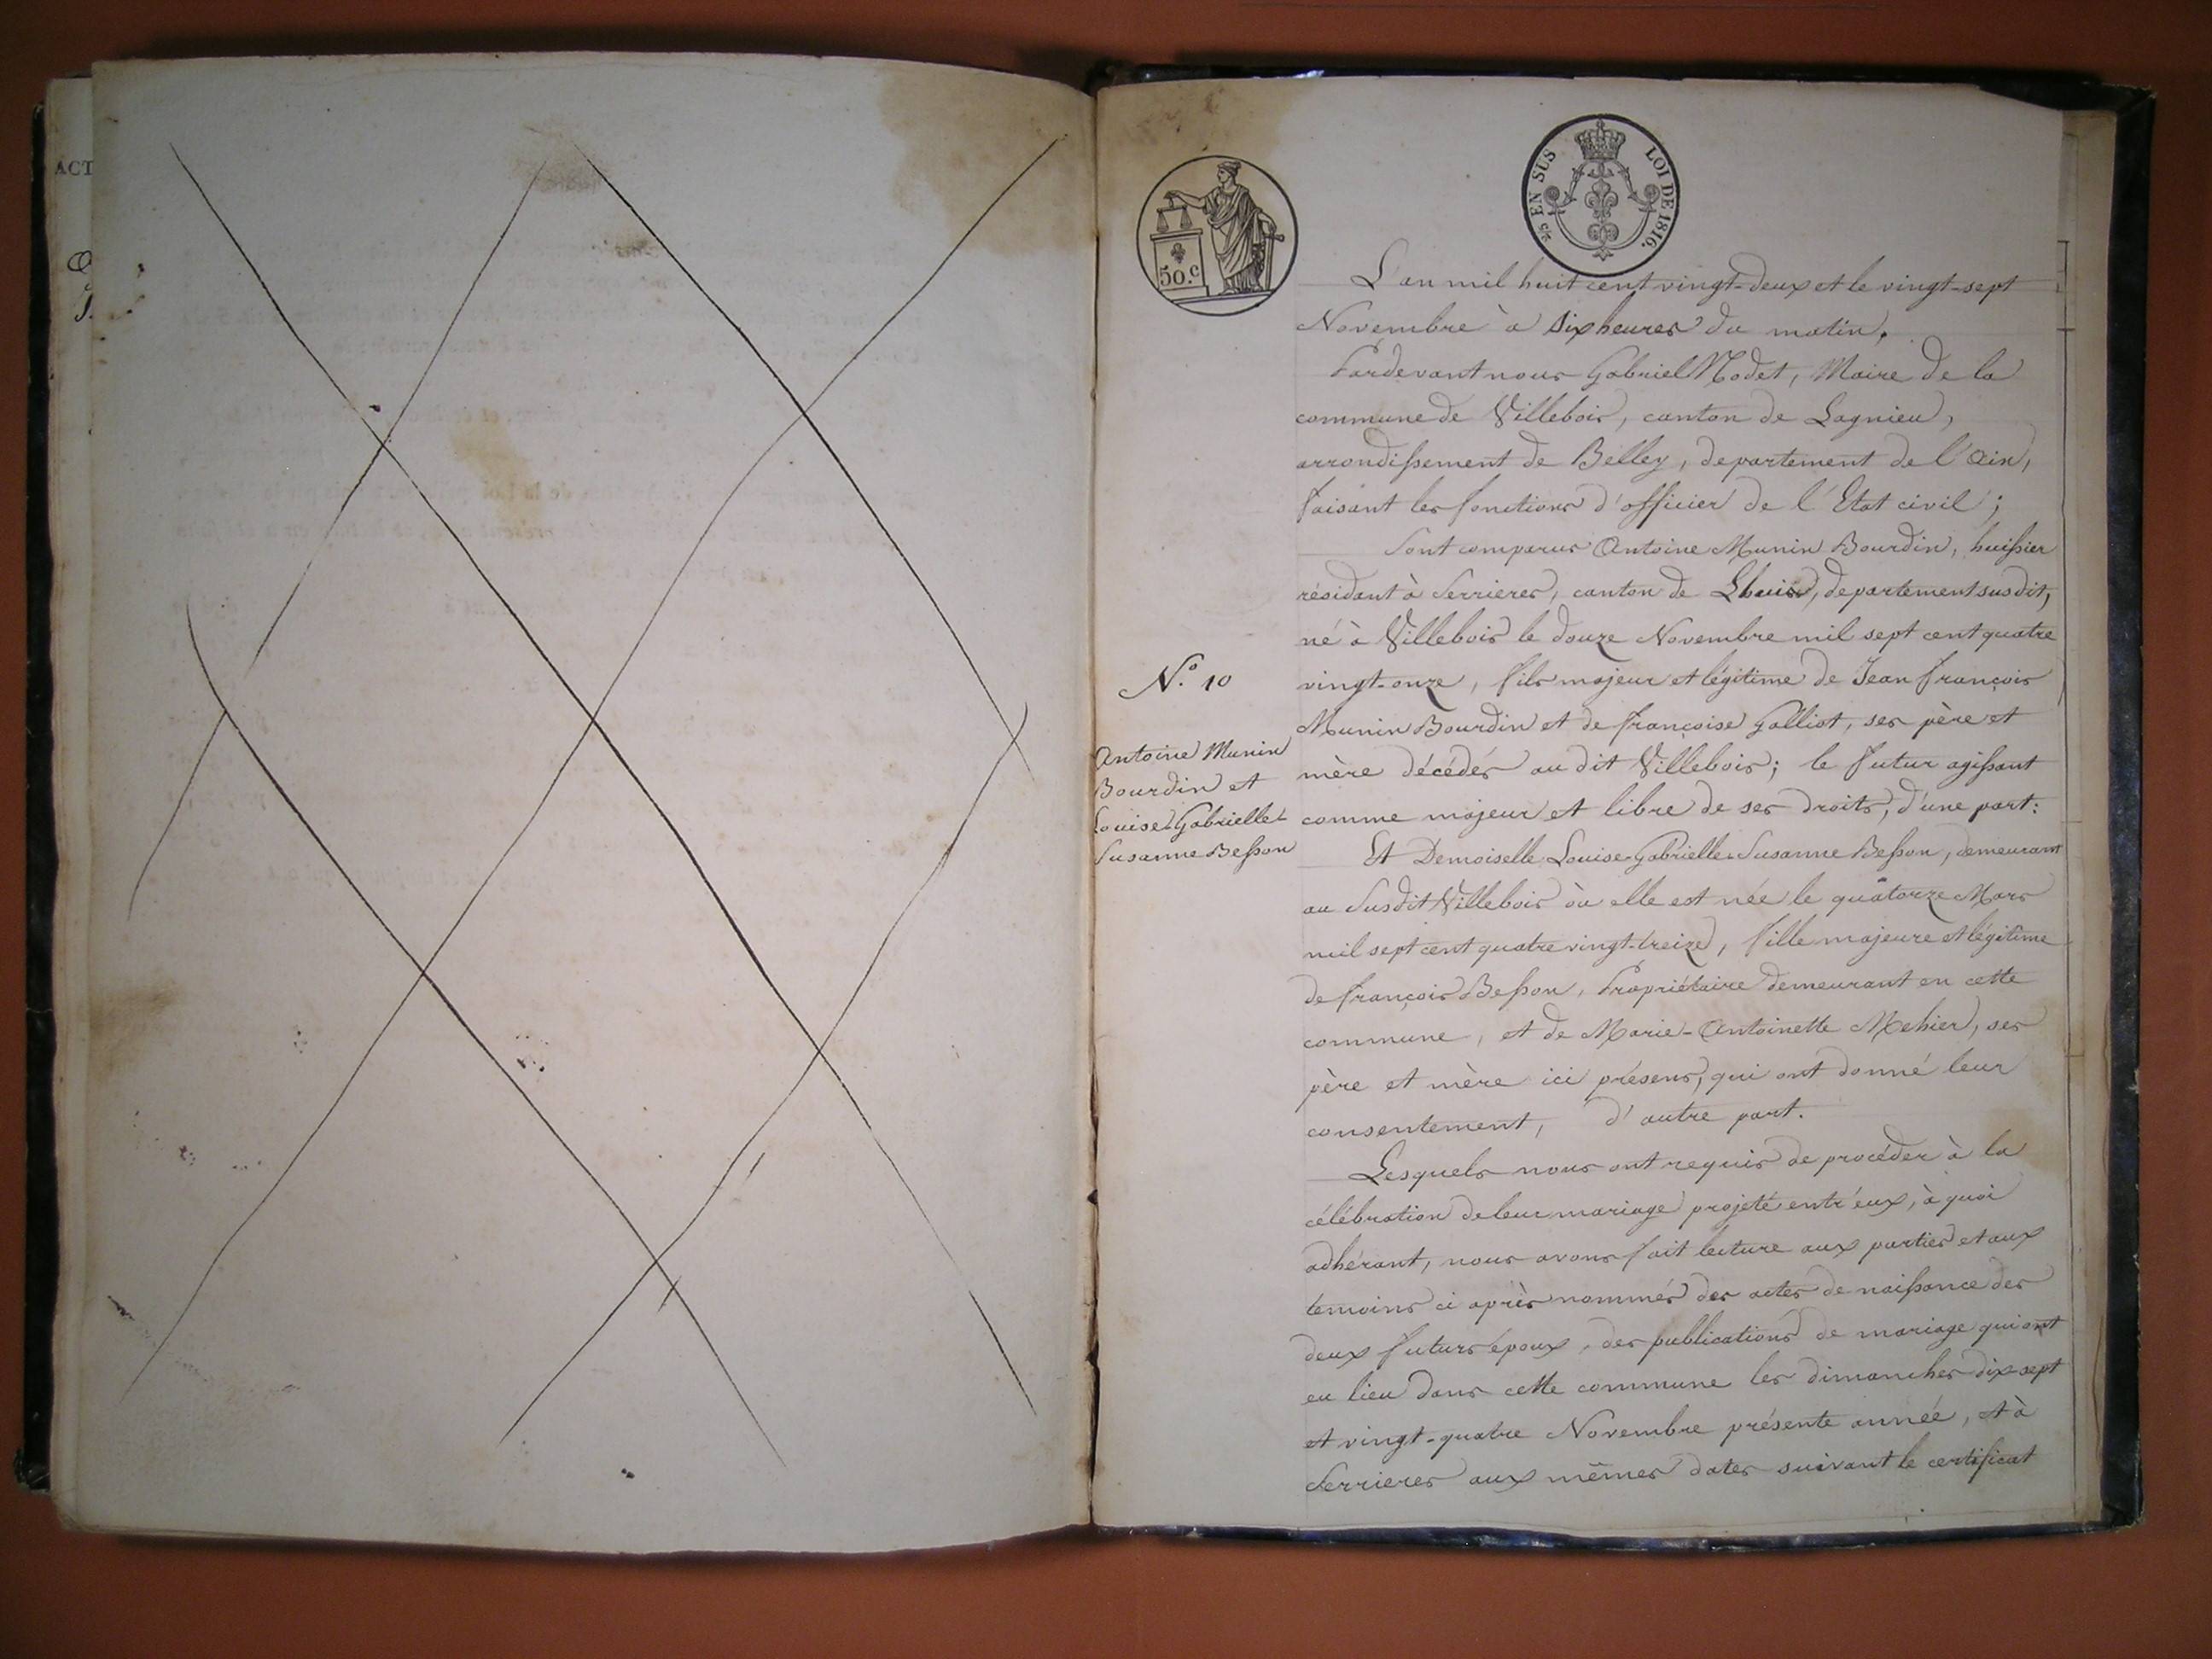 ACT
50.c
2/5 EN SUS LOI DE 1816.
L'an mil huit cent vingt-deux et le vingt-sept
Novembre à six heures du matin.
Pardevant nous Gabriel Modet, Maire de la
commune de Villebois, canton de Lagnieu,
arrondissement de Belley, departement de l'Ain,
faisant les fonctions d'officier de l'Etat civil ;
Sont comparus Antoine Munin Bourdin, huissier
résidant à Serrieres, canton de Lhuis, departement susdit,
né à Villebois le douze Novembre mil sept cent quatre
vingt-onze, fils majeur et légitime de Jean François
Munin Bourdin et de françoise Galliot, ses père et
mère décédés au dit Villebois ; le futur agissant
comme majeur et libre de ses droits, d'une part :
Et Demoiselle Louise-Gabrielle-Susanne Besson, demeurant
au susdit Villebois où elle est née le quatorze Mars
mil sept cent quatre vingt-treize, fille majeure et légitime
de françois Besson, Propriétaire demeurant en cette
commune, et de Marie-Antoinette Mehier, ses
père et mère ici présens, qui ont donné leur
consentement, d'autre part.
Lesquels nous ont requis de procéder à la
célébration de leur mariage projeté entr'eux, à quoi
adhérant, nous avons fait lecture aux parties et aux
temoins ci après nommés des actes de naissance des
deux futurs époux, des publications de mariage qui ont
eu lieu dans cette commune les dimanches dix-sept
et vingt-quatre Novembre présente année, et à
Serrieres aux mêmes dates suivant le certificat
N.o 10
Antoine Munin
Bourdin et
Louise-Gabrielle-
Susanne Besson